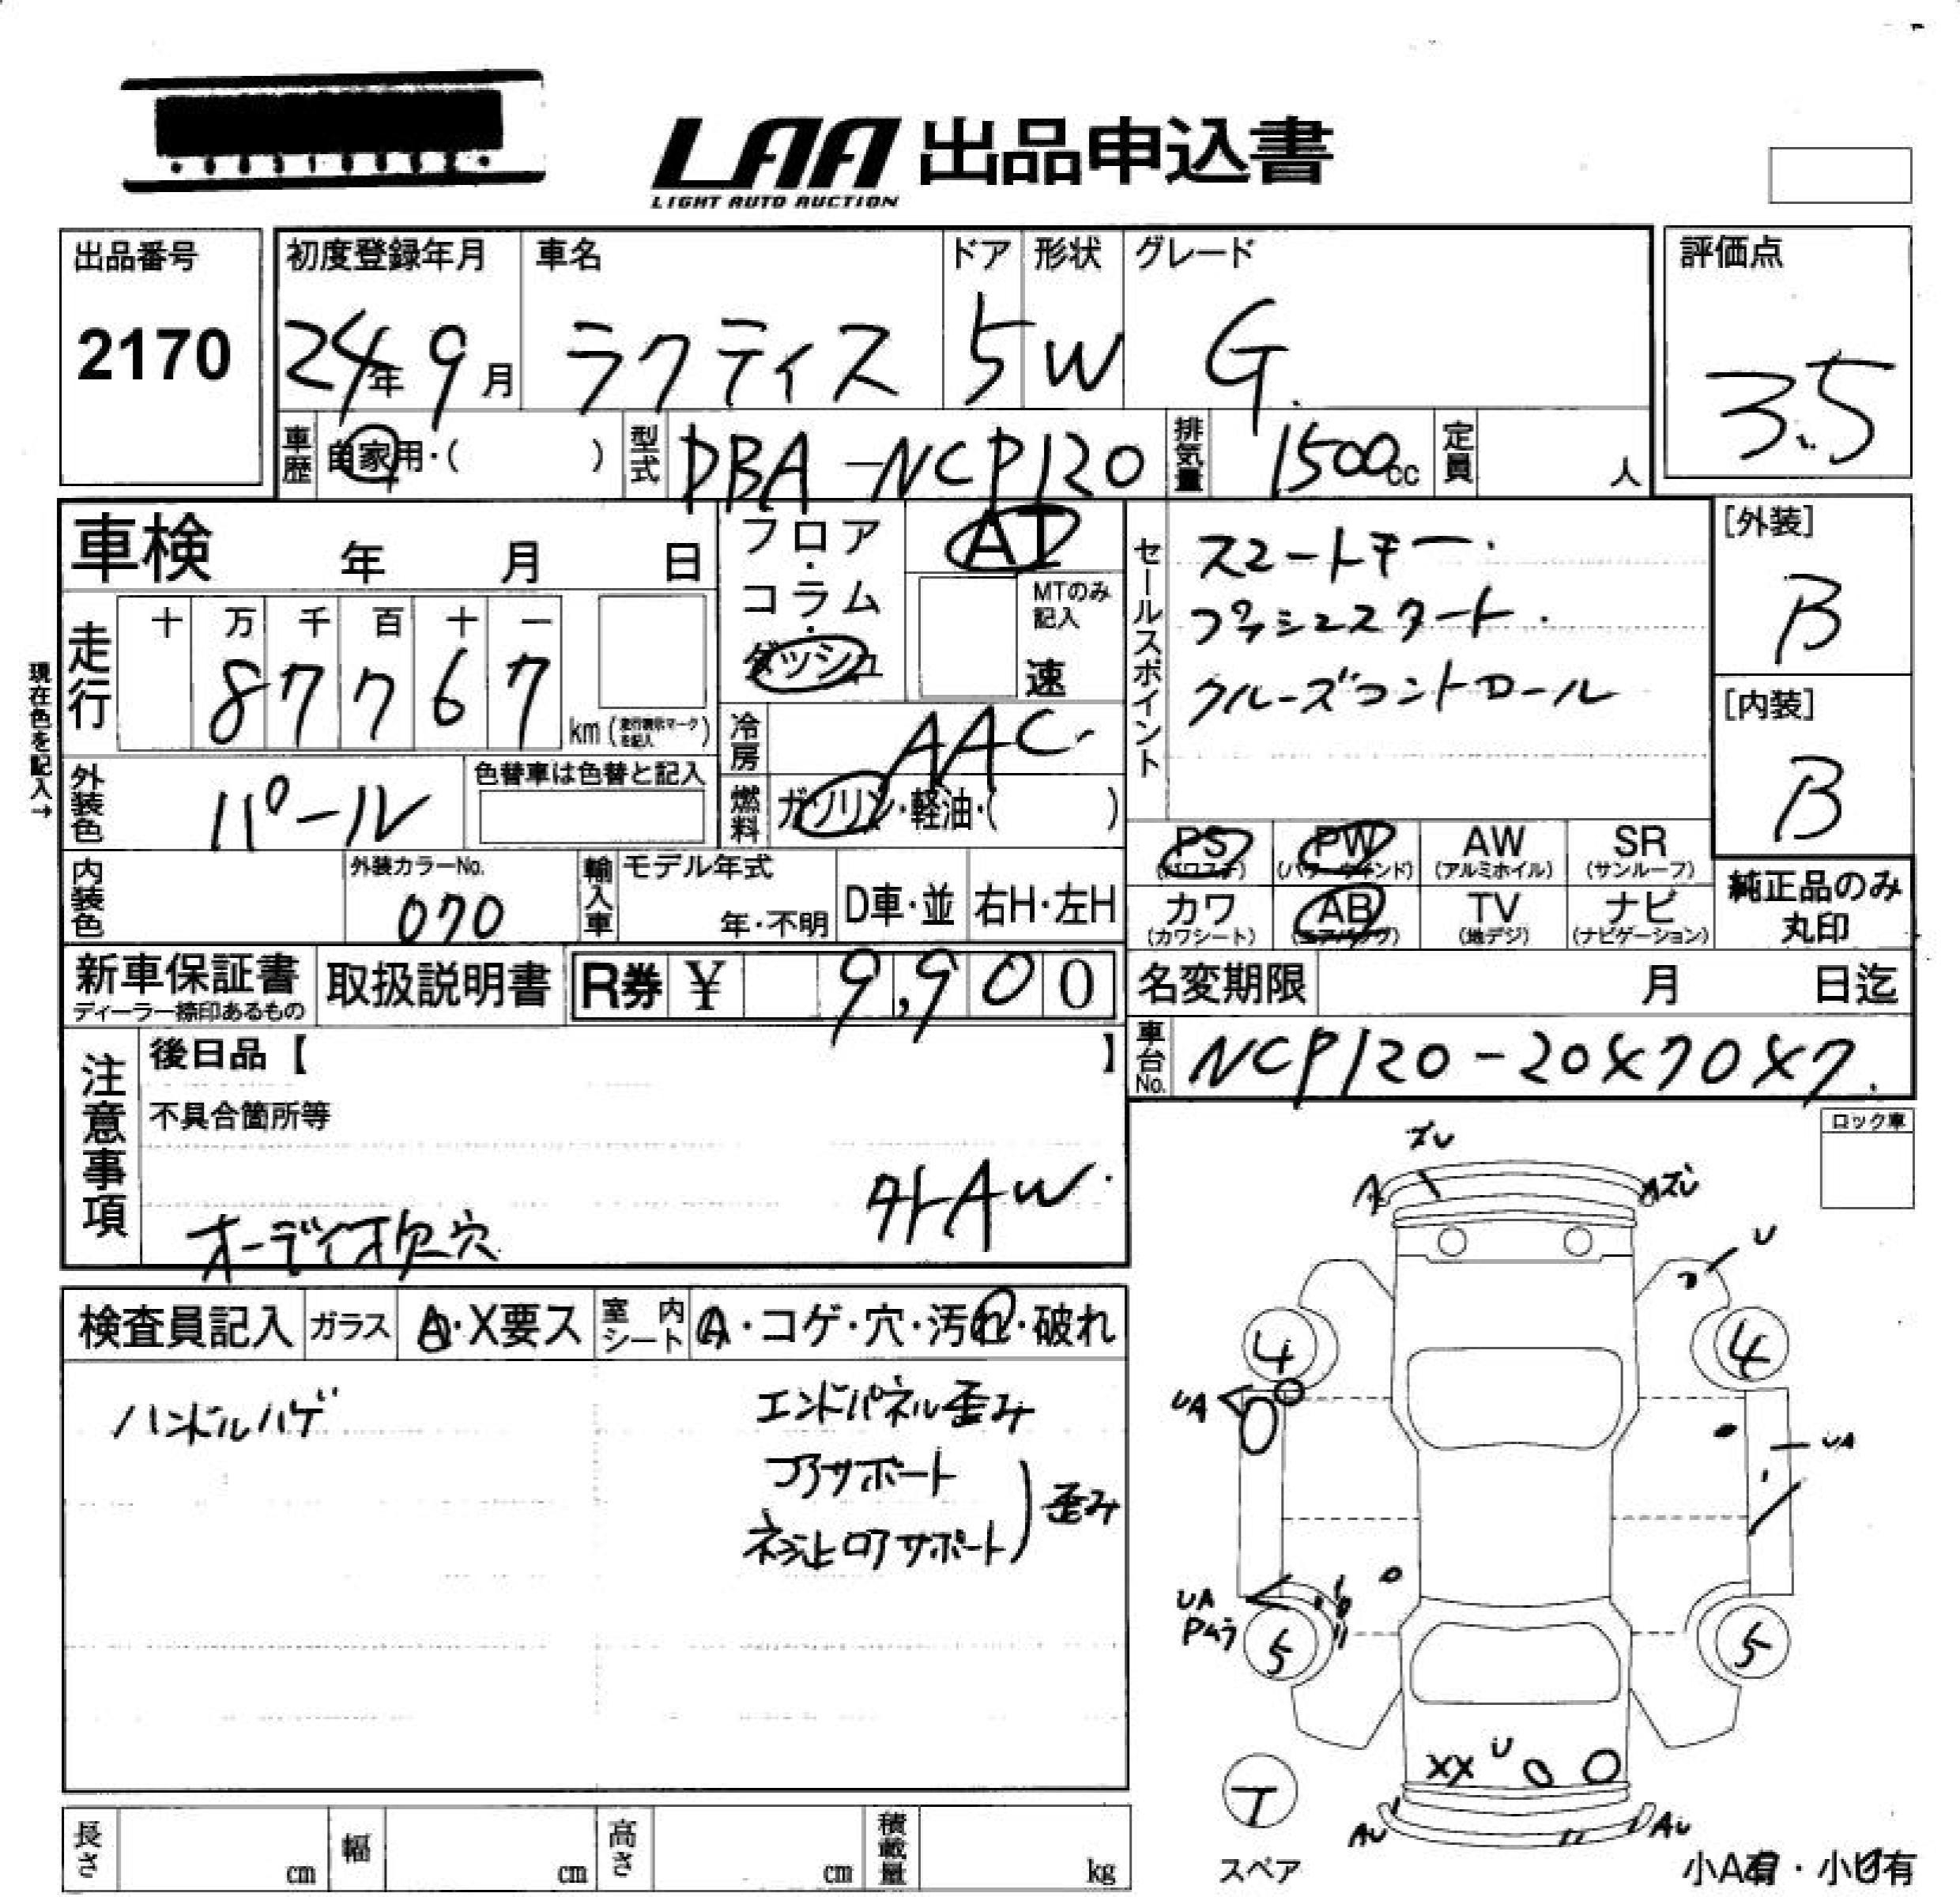 LAA 出品申込書
LIGHT AUTO AUCTION
出品番号
2170
初度登録年月
24年 9月
車名
ラクティス
ドア
5
形状
W
グレード
G.
評価点
3.5
車歴
自家用・( )
型式
DBA-NCP120
排気量
1500cc
定員
人
車検 年 月 日
フロア・コラム・ダッシュ
AT
MTのみ記入
速
セールスポイント
スマートキー.
プッシュスタート.
クルーズコントロール
[外装]
B
[内装]
B
現在色を記入→
走行
十 万 千 百 十 一
8 7 7 6 7
km (走行表示マークを記入)
冷房
AAC
燃料
ガソリン・軽油・( )
外装色
パール
色替車は色替と記入
内装色
外装カラーNo.
070
輸入車
モデル年式
年・不明
D車・並
右H・左H
PS (パワステ)
PW (パワーウィンド)
AW (アルミホイル)
SR (サンルーフ)
カワ (カワシート)
AB (エアバッグ)
TV (地デジ)
ナビ (ナビゲーション)
純正品のみ丸印
新車保証書
ディーラー捺印あるもの
取扱説明書
R券 ¥ 9,900
名変期限 月 日迄
注意事項
後日品【 】
不具合箇所等
外AW.
オーディオ欠穴
車台No.
NCP120-20X70X7.
ロック車
検査員記入
ガラス
A・X要ス
室内シート
A・コゲ・穴・汚れ・破れ
ハンドルハゲ
エンドパネル歪み
コアサポート
ネジ止ロアサポート
歪み
ズレ
A
Aズレ
U
4
4
UA
UA
UA
Pムラ
5
5
XX
U
AU
AU
T
スペア
小A有・小U有
長さ cm
幅 cm
高さ cm
積載量 kg